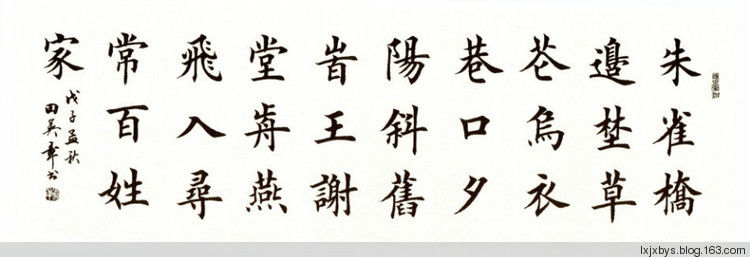 朱雀橋
邊埜草
芲烏衣
巷口夕
陽斜舊
旹王謝
堂歬燕
飛入尋
常百姓
家
戊子孟秋
田英章书
lxjxbys.blog.163.com